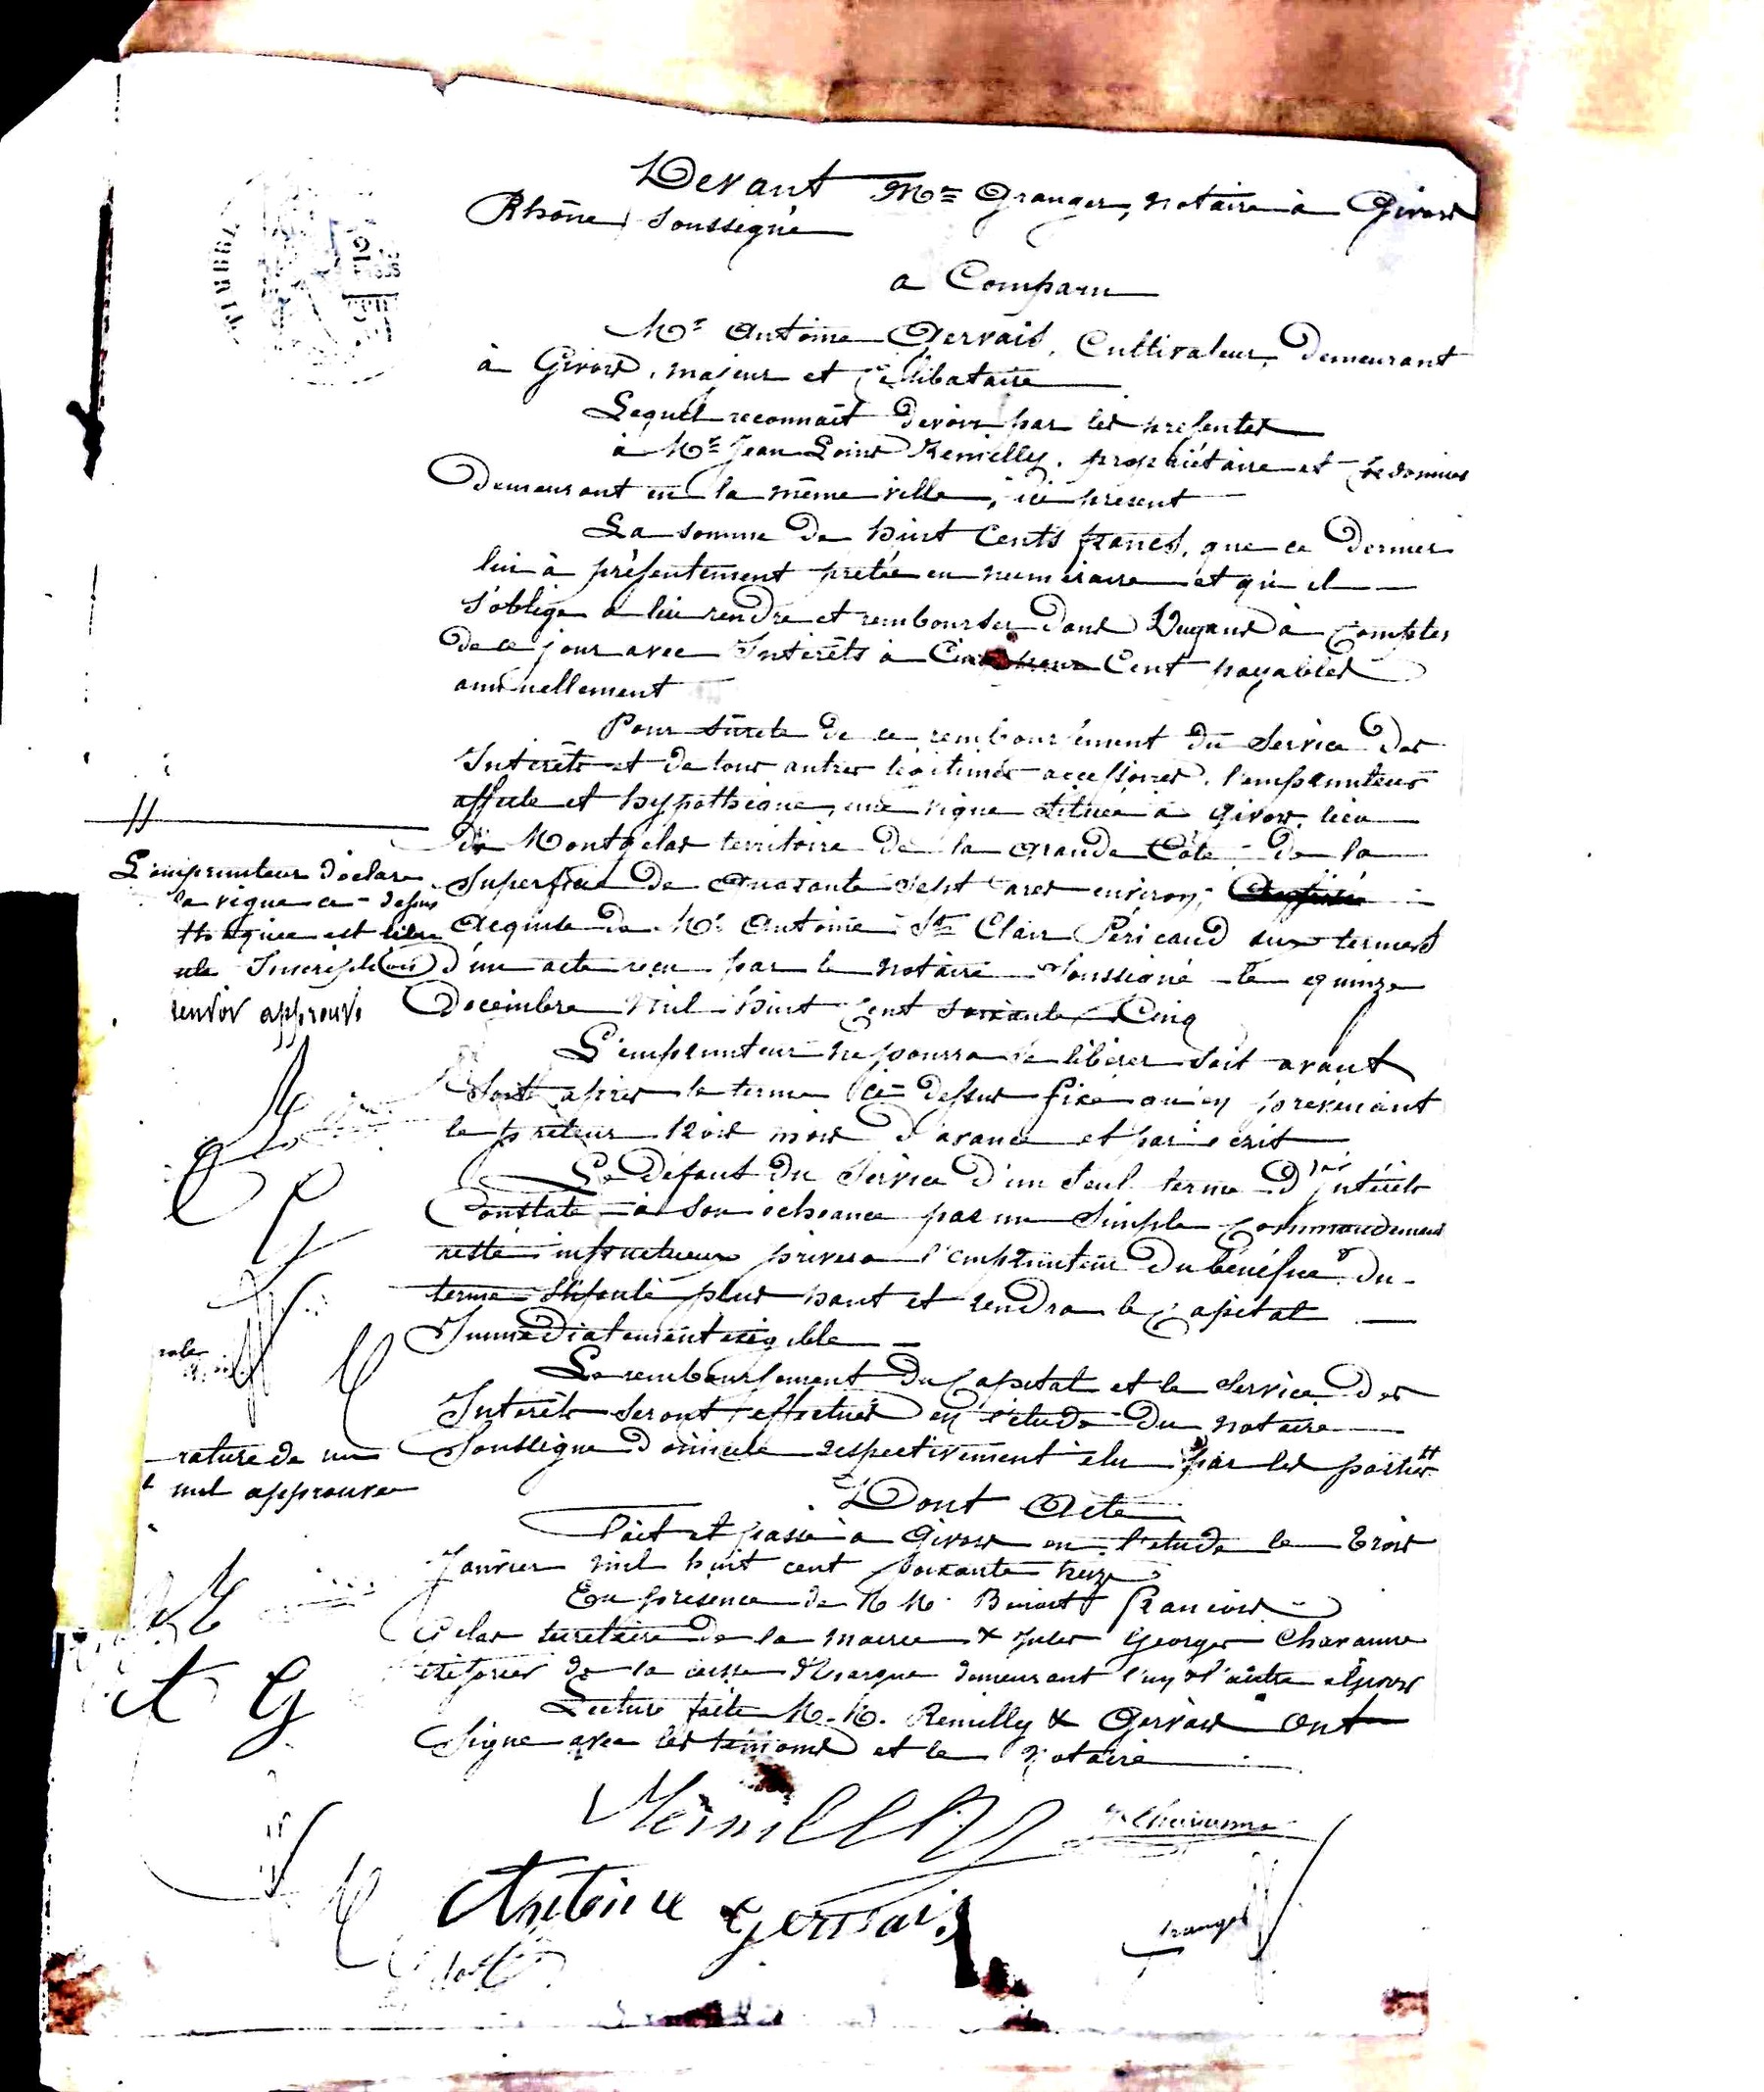 Devant Me Granger, notaire à Givors
Rhône, soussigné
a Comparu
Mr Antoine Gervais, Cultivateur, Demeurant
à Givors, majeur et Célibataire
Lequel reconnait devoir par les présentes
à Mr Jean Louis Remilly, propriétaire et
Demeurant en la même ville, ici présent
La somme de huit Cents francs, que ce dernier
lui à présentement prêtée en numéraire et qu'il
s'oblige à lui rendre et rembourser dans Deux ans à Compter
de ce jour avec Intérêts à Cinq pour Cent payables
annuellement
Pour sûreté de ce remboursement du Service des
Intérêts et de tous autres légitimes accessoires, l'emprunteur
affecte et hypothèque, une vigne située à Givors, lieu
de Montgelas territoire de la Grande Côte de la
Superficie de Quarante sept ares environ,
Acquise de Mr Antoine St Clair Péricaud aux termes
d'un acte reçu par le notaire soussigné le quinze
Décembre Mil huit Cent soixante Cinq
L'emprunteur ne pourra se libérer soit avant
soit après le terme ci-dessus fixé qu'en prévenant
le prêteur trois mois d'avance et par écrit
Le Défaut du Service d'un seul terme d'Intérêts
Constaté à son échéance par un simple Commandement
resté infructueux privera l'emprunteur du bénéfice du
terme stipulé plus haut et rendra le Capital
Immédiatement exigible
Le remboursement du Capital et le Service des
Intérêts seront effectués en l'étude du notaire
Soussigné domicile respectivement élu par les parties
Dont Acte
Fait et passé à Givors en l'étude le trois
Janvier mil huit cent soixante treize
En présence de M M. Benoit François
secrétaire de la mairie & Jules Georges Chavanne
de la caisse d'Epargne demeurant l'un & l'autre à Givors
Lecture faite M. M. Remilly & Gervais Ont
Signé avec les témoins et le Notaire
//
L'emprunteur déclare
la vigne ci-dessus
thèquée est libre
Inscription
renvoi approuvé
rature de un
nul approuvé
A G
Remilly
Chavanne
Antoine Gervais
Granger